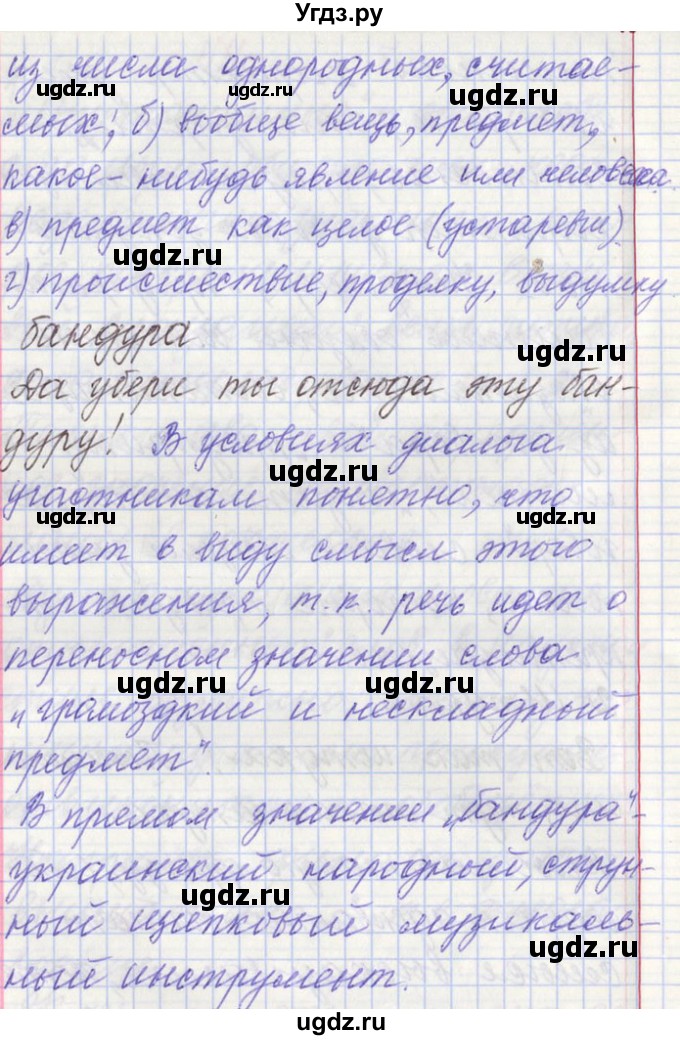 Угдз.ру
из числа однородных, считае-
ugdz.ru ugdz.ru
мых; б) вообще вещь, предмет,
какое-нибудь явление или человека.
в) предмет как целое (устаревш).
ugdz.ru
г) происшествие, проделку, выдумку
бандура
ugdz.ru
Да убери ты отсюда эту бан-
дуру! В условиях диалога
ugdz.ru
участникам понятно, что
ugdz.ru ugdz.ru
имеет в виду смысл этого
выражения, т.к. речь идет о
переносном значении слова
ugdz.ru ugdz.ru
"громоздкий и нескладный
предмет".
В прямом значении "бандура"-
украинский народный, струн-
ugdz.ru
ный щипковый музикаль-
ugdz.ru
ный инструмент.
ugdz.ru